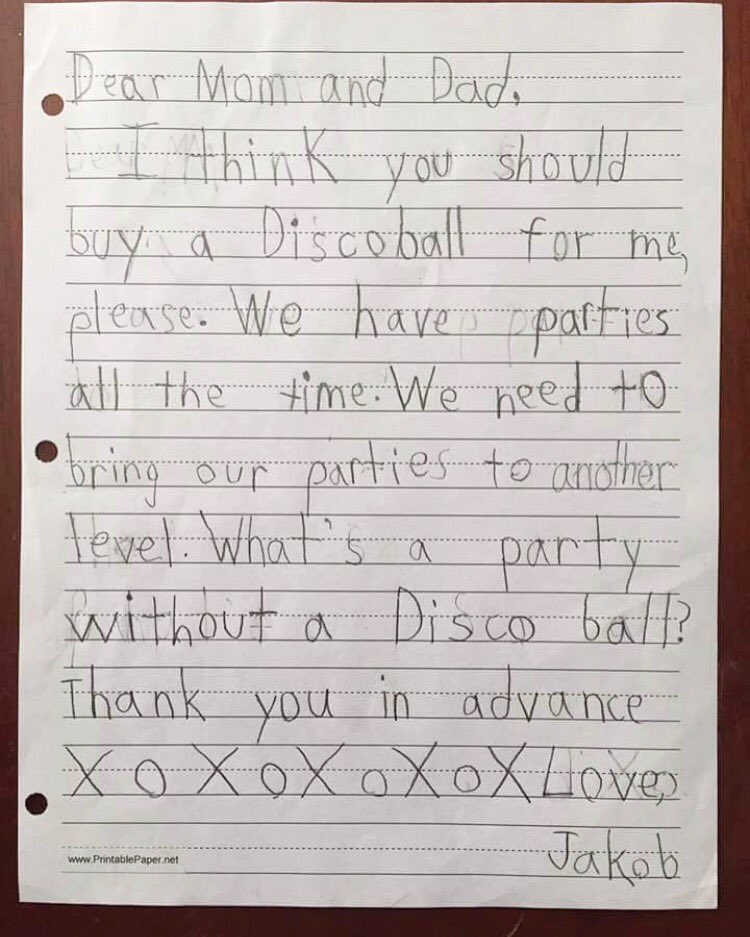 Dear Mom and Dad,
I think you should
buy a Discoball for me,
please. We have parties
all the time. We need to
bring our parties to another
level. What's a party
without a Disco ball?
Thank you in advance
XOXOXOXOX Love,
www.PrintablePaper.net
Jakob